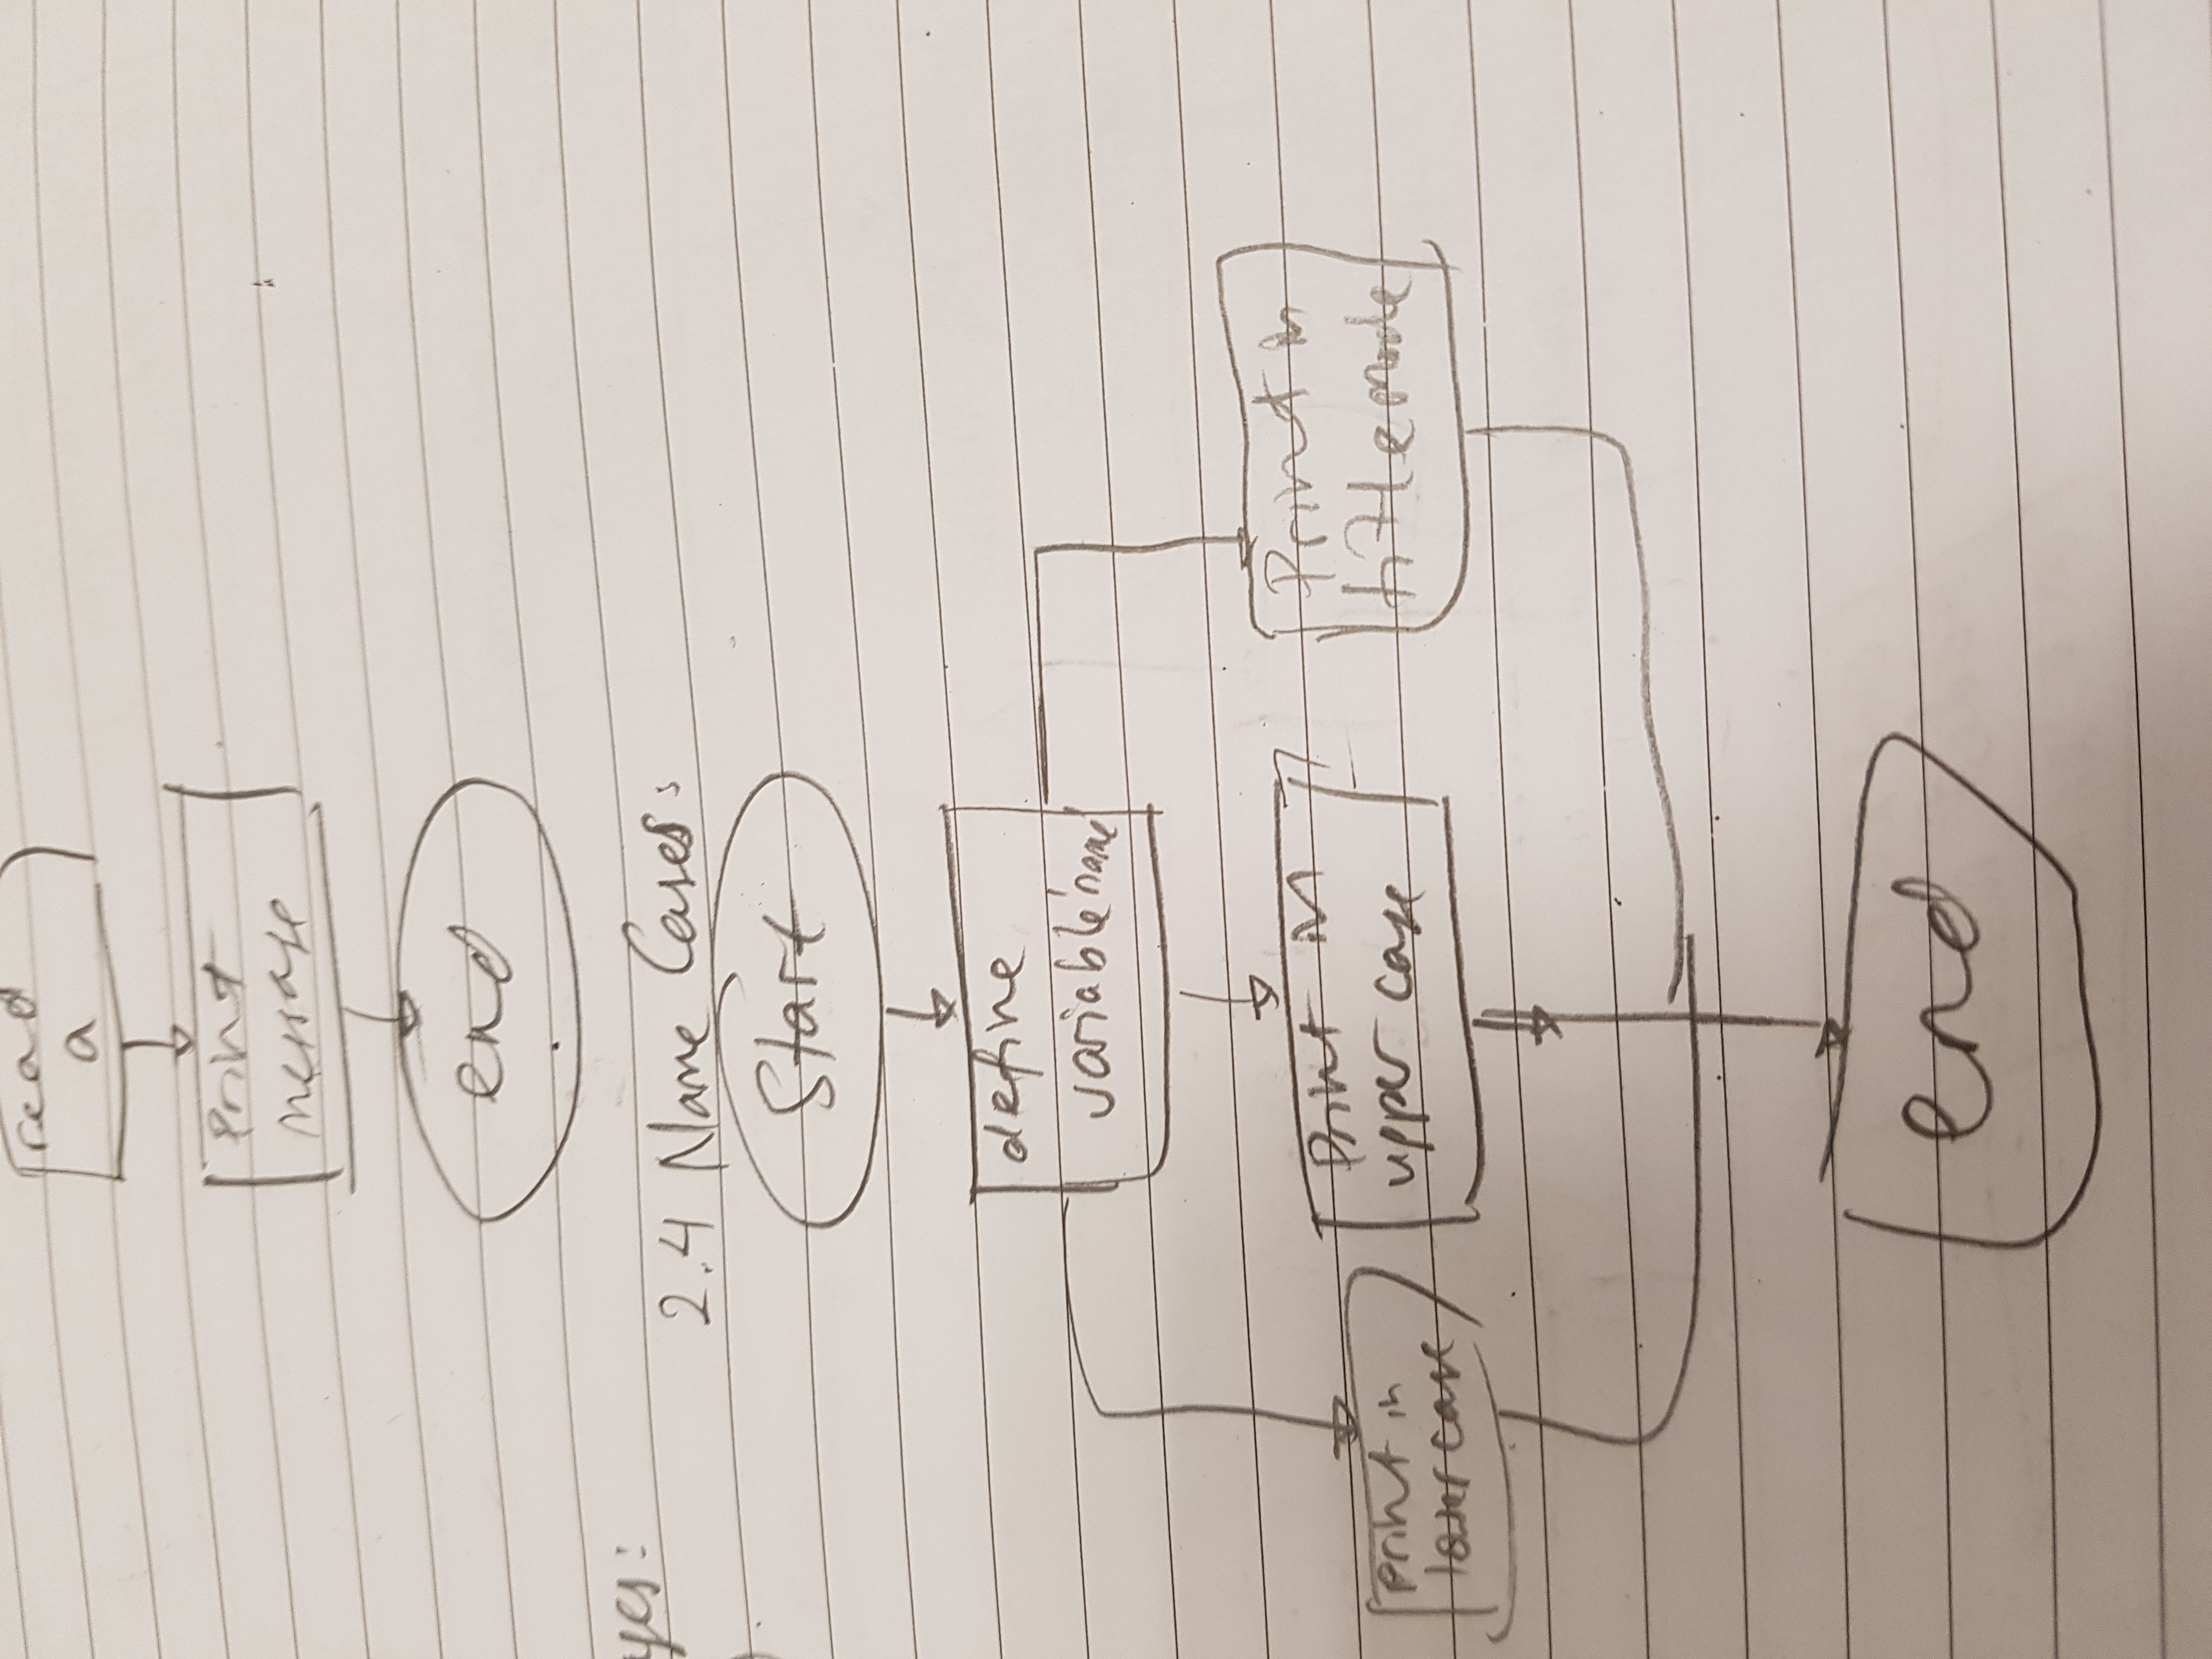 read
a
Print
message
end
yes:
2.4 Name Cases:
Start
define
variable 'name
Print in
upper case
Print in
title mode
print in
lower case
end